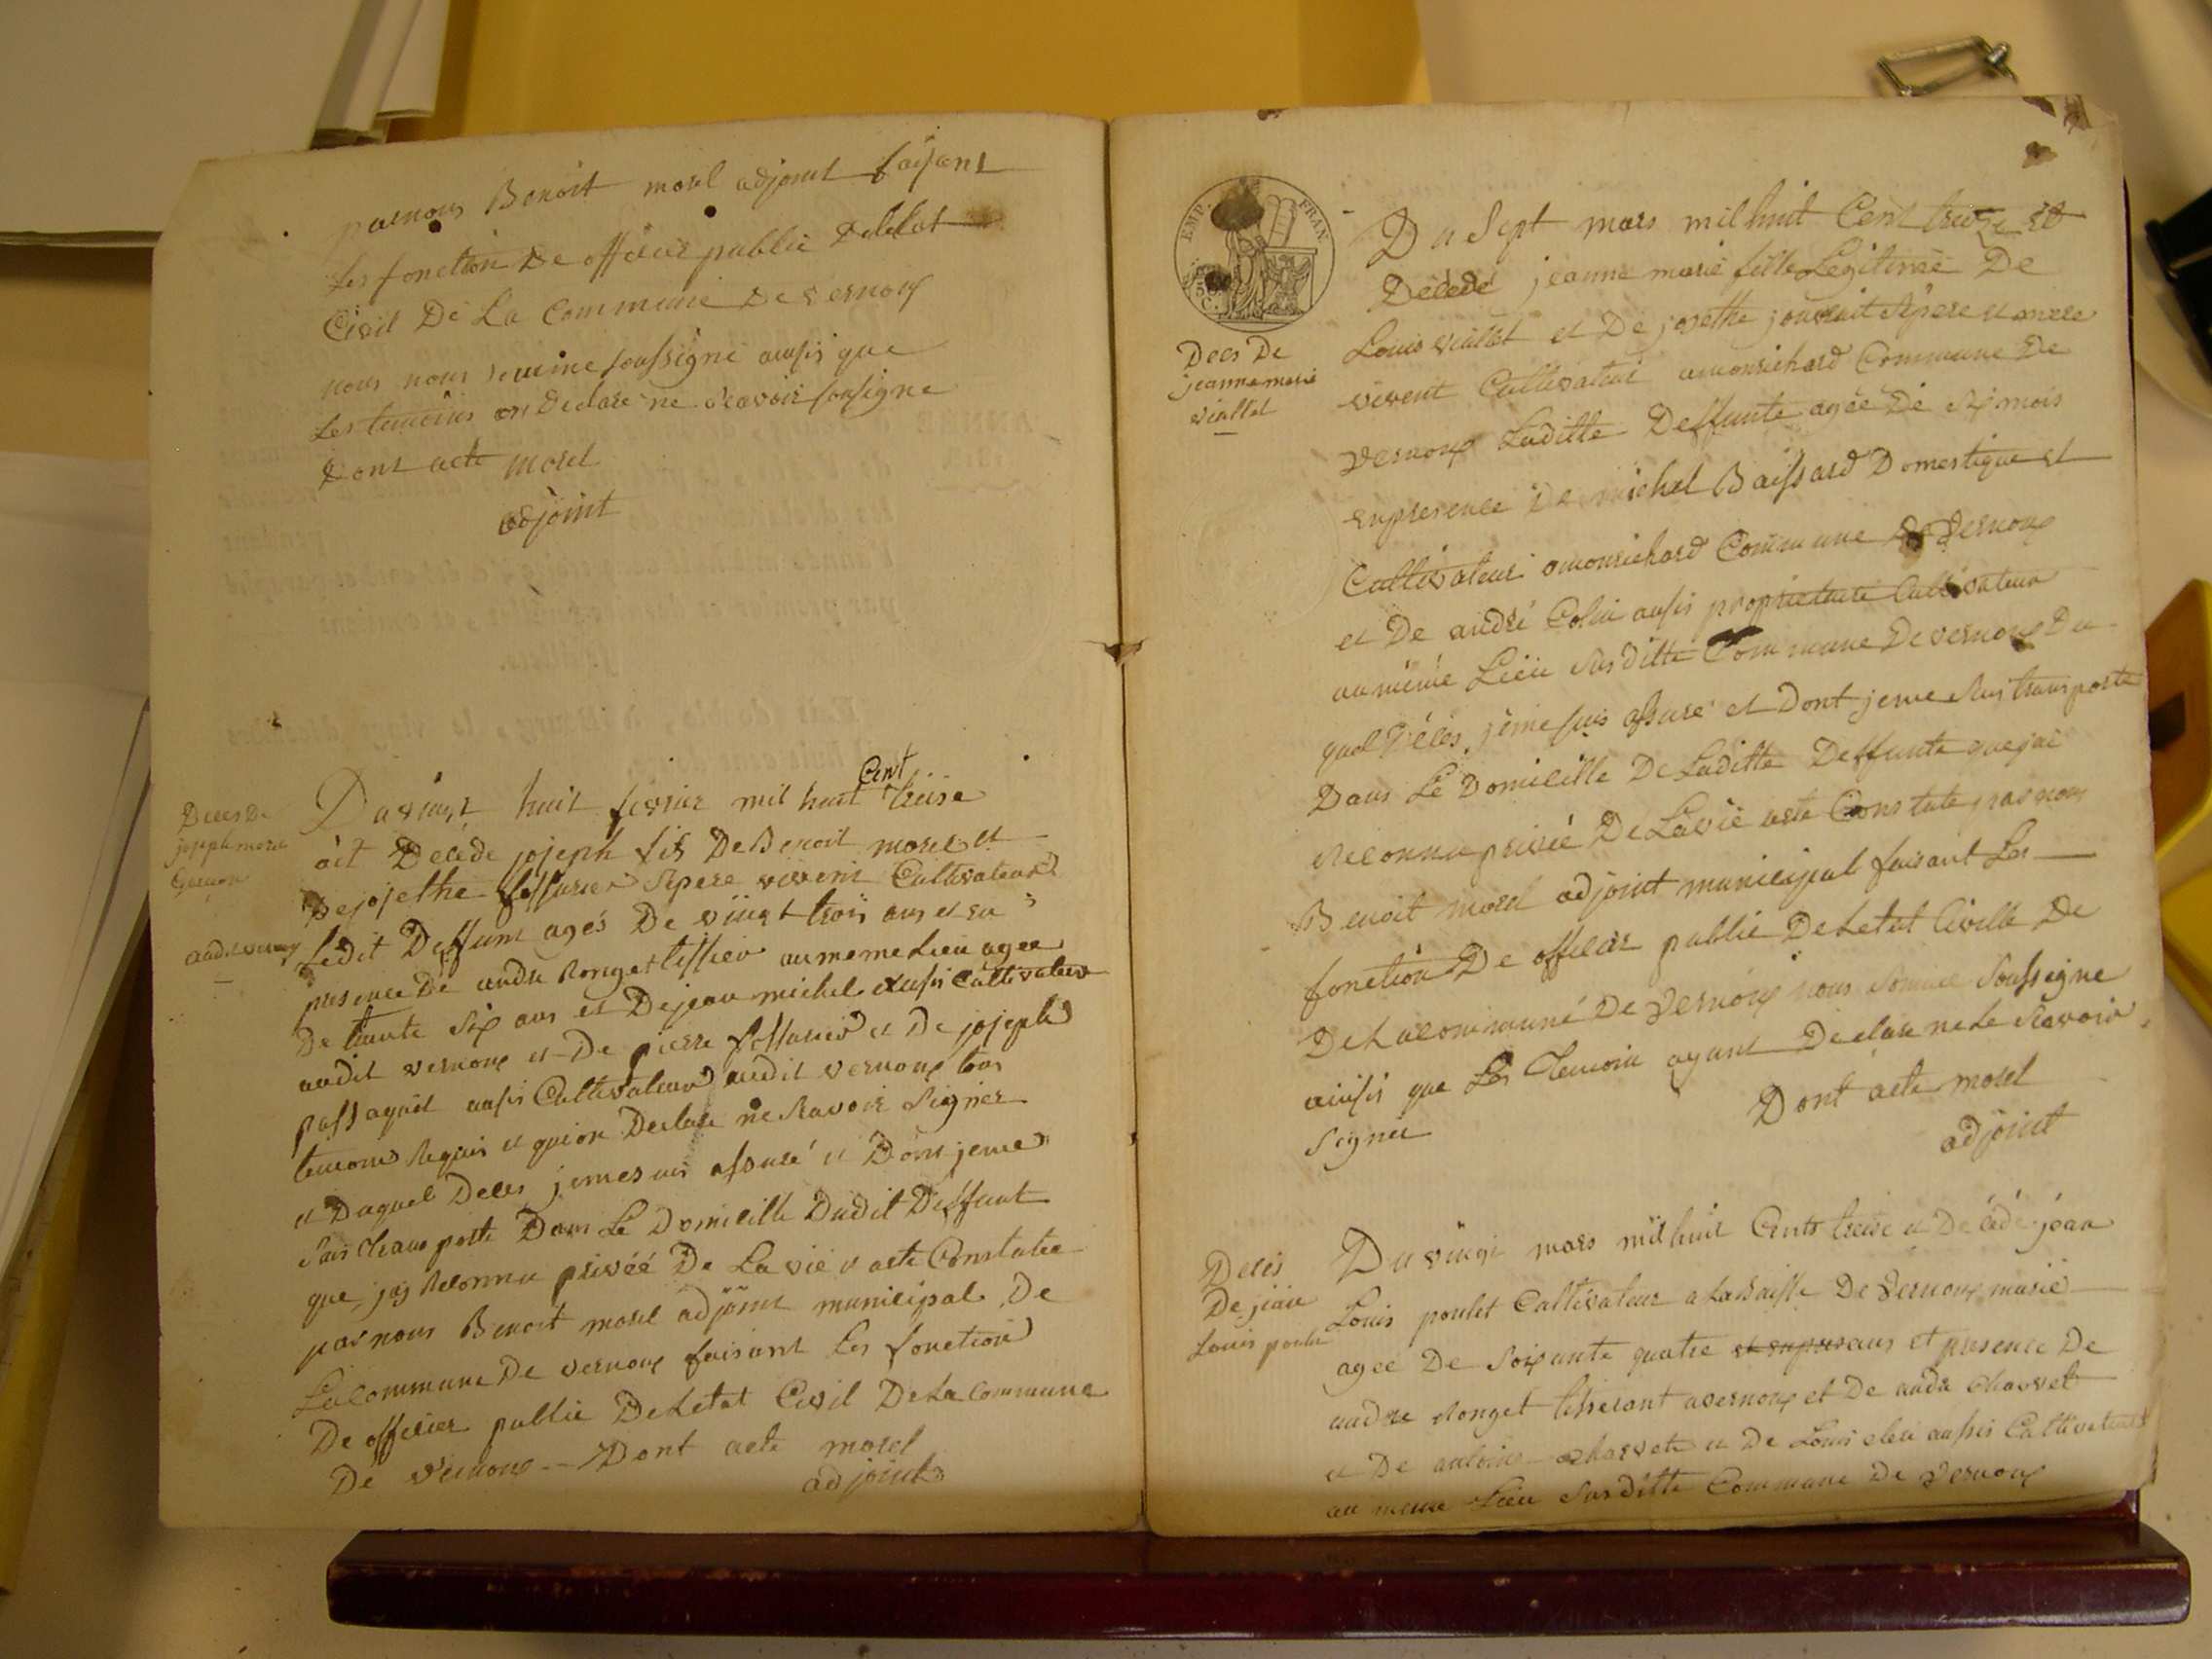 par nous Benoit morel adjoint faisant
Les fonction De officier public de letat
Civil De La Commune De vernoux
nous nous somme soussigne ausis que
Les temoins on Declare ne scavoir sousigne
Dont acte morel
adjoint
Deces De
joseph morel
audit vernoux
Du vingt huit fevrier mil huit Cent treise
ait Decede joseph fis De Benoit morel et
De josethe fossurier Spere vivent Cultivateur
Ledit Deffunt agés De vingt trois ans et en
presence De andre Ronget tissier au meme Lieu agee
De trante Six ans et De jean michel ausis Cultivateur
audit vernoux et De pierre fossurier et De joseph
passaquit ausis Cultivateur audit vernoux tous
temoins Requis et qui on Declare ne Scavoir Signer
et Duquel Deces je me suis assuré et Dont je me
Suis transporte Dans Le Domicille Dudit Deffunt
que jay Reconnu privéé De La vie et acte Constatee
par nous Benoit morel adjoint municipal De
La Commune De vernoux faisant Les fonction
De officier public De Letat Civil De La Commune
De vernoux -- Dont acte morel
adjoint
EMP. FRAN.
50
C.
Deces De
jeanne marie
viallet
Du Sept mars mil huit Cent treize et
Décédé jeanne marie fille Legitimée De
Louis viallet et De josethe jouvrait Spere et mere
vivent Cultivateur a monrichard Commune De
vernoux Laditte Deffunte agée De Six mois
en presence De michel Baissard Domestique et
Cultivateur a monrichard Commune De vernoux
et De andré Colin ausis proprietaire Cultivateur
au même Lieu Susditte Commune De vernoux Du
quel Décès je me suis assuré et Dont je me Suis transporte
Dans Le Domicille De Laditte Deffunte que jai
Reconnu privée De La vie acte Constate par nous
Benoit morel adjoint municipal faisant Les
fonction De officier public De Letat Civille De
De La communé De vernoux nous Somme Soussigne
ainsis que Les Temoin ayant Declare ne Le Scavoir
Signer
Dont acte morel
adjoint
Decès
De jean
Louis poulet
Du vingt mars mil huit Cents treise et Décédé jéan
Louis poulet Cultivateur a La De vernoux marié
agee De Soixante quatre ans et presence De
andre Ronget tisserant a vernoux et De andre Charvet
et De antoine Charvet et De Louis ausis Cultivateur
au meme Lieu Susditte Commune De vernoux